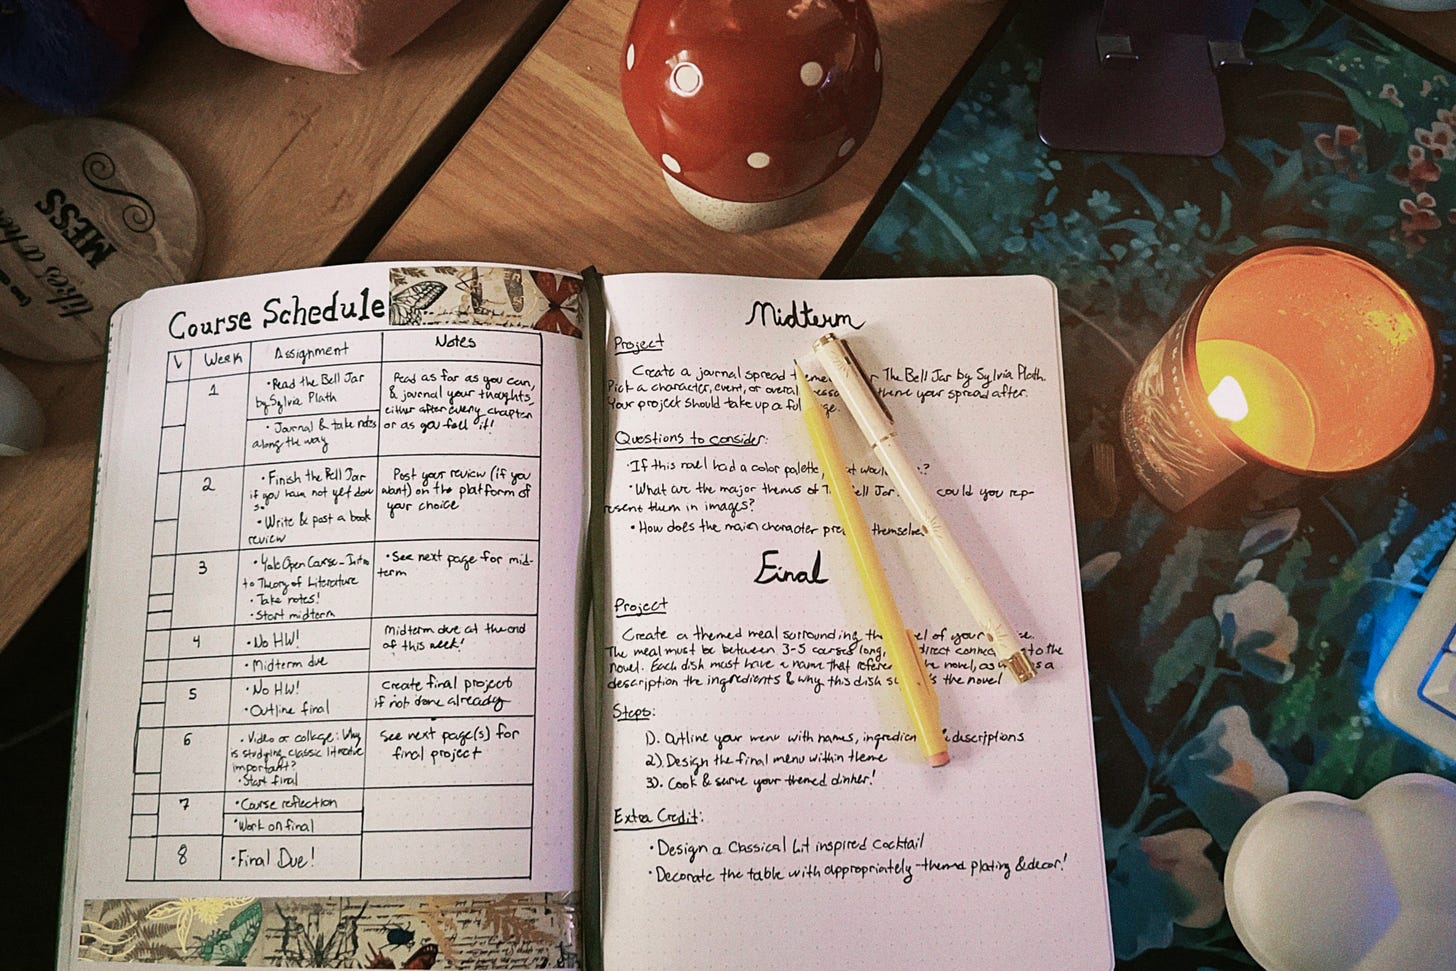 MESS
likes a
SEAWEED
Course Schedule
√ Week Assignment Notes
1
• Read the Bell Jar
by Sylvia Plath
• Journal & take notes
along the way
Read as far as you can,
& journal your thoughts,
either after every chapter
or as you feel it!
2
• Finish the Bell Jar
if you have not yet done
so
• Write & post a book
review
Post your review (if you
want) on the platform of
your choice
3
• Yale Open Course - Intro
to Theory of Literature
• Take notes!
• Start midterm
• See next page for mid-
term
4
• No HW!
• Midterm due
Midterm due at the end
of this week!
5
• No HW!
• Outline final
Create final project
if not done already
6
• Video or collage: Why
is studying classic literature
important?
• Start final
See next page(s) for
final project
7
• Course reflection
• Work on final
8
• Final Due!
Midterm
Project
Create a journal spread The Bell Jar by Sylvia Plath.
Pick a character, event, or overall theme your spread after.
Your project should take up a
Questions to consider:
• If this novel had a color palette,
• What are the major themes of Jar. could you rep-
resent them in images?
• How does the main character
Final
Project
Create a themed meal surrounding of your
The meal must be between 3-5 courses long, to the
novel. Each dish must have a name that novel, as a
description the ingredients & why this dish the novel
Steps:
1). Outline your menu with names, descriptions
2). Design the final menu within theme
3). Cook & serve your themed dinner!
Extra Credit:
• Design a Classical Lit inspired Cocktail
• Decorate the table with appropriately-themed plating & decor!